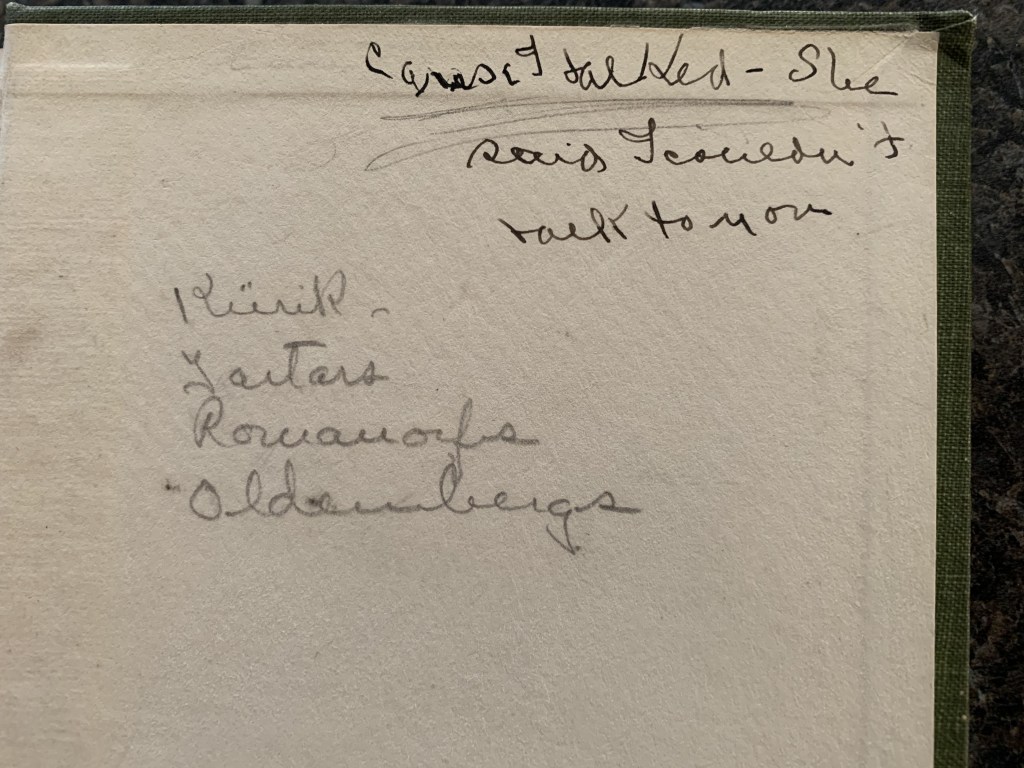 Cause I talked - She
said I couldn't
talk to you
Rürik -
Tartars
Romanoffs
Oldenbergs